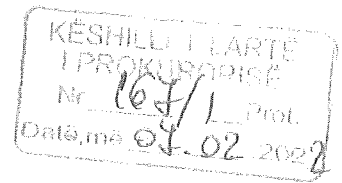 KËSHILLI I LARTË
I PROKURORISË
Nr 167/1 Prot.
Datë,më 07.02 2022